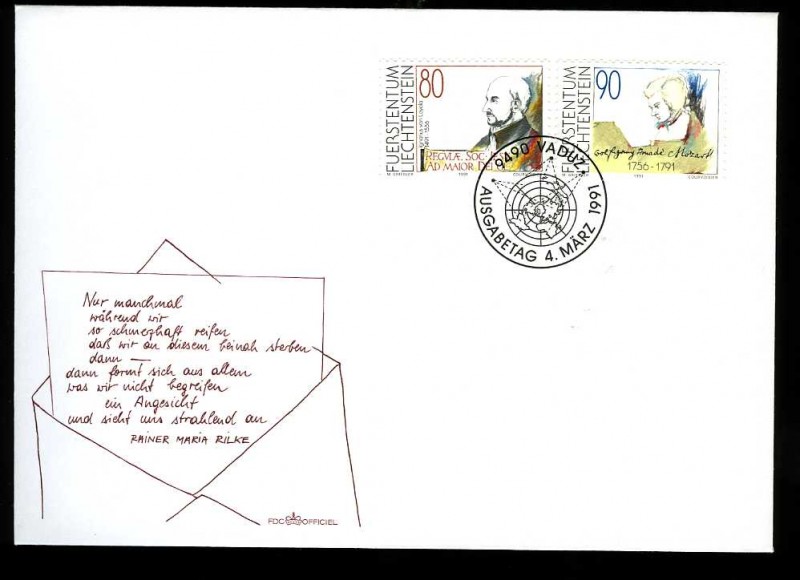 FUERSTENTUM
LIECHTENSTEIN
80
Ignatius von Loyola
1491 - 1556
REGVLÆ SOC.
(AD MAIOR DEI
1991
COURVOISIER
FUERSTENTUM
LIECHTENSTEIN
90
Wolfgang Amadé Mozart
1756-1791
1991
COURVOISIER
9490 VADUZ
AUSGABETAG 4. MÄRZ 1991
Nur manchmal
während wir
so schmerzhaft reifen
daß wir an diesem beinah sterben
dann —
dann formt sich aus allem
was wir nicht begreifen
ein Angesicht
und sieht uns strahlend an
RAINER MARIA RILKE
FDC OFFICIEL